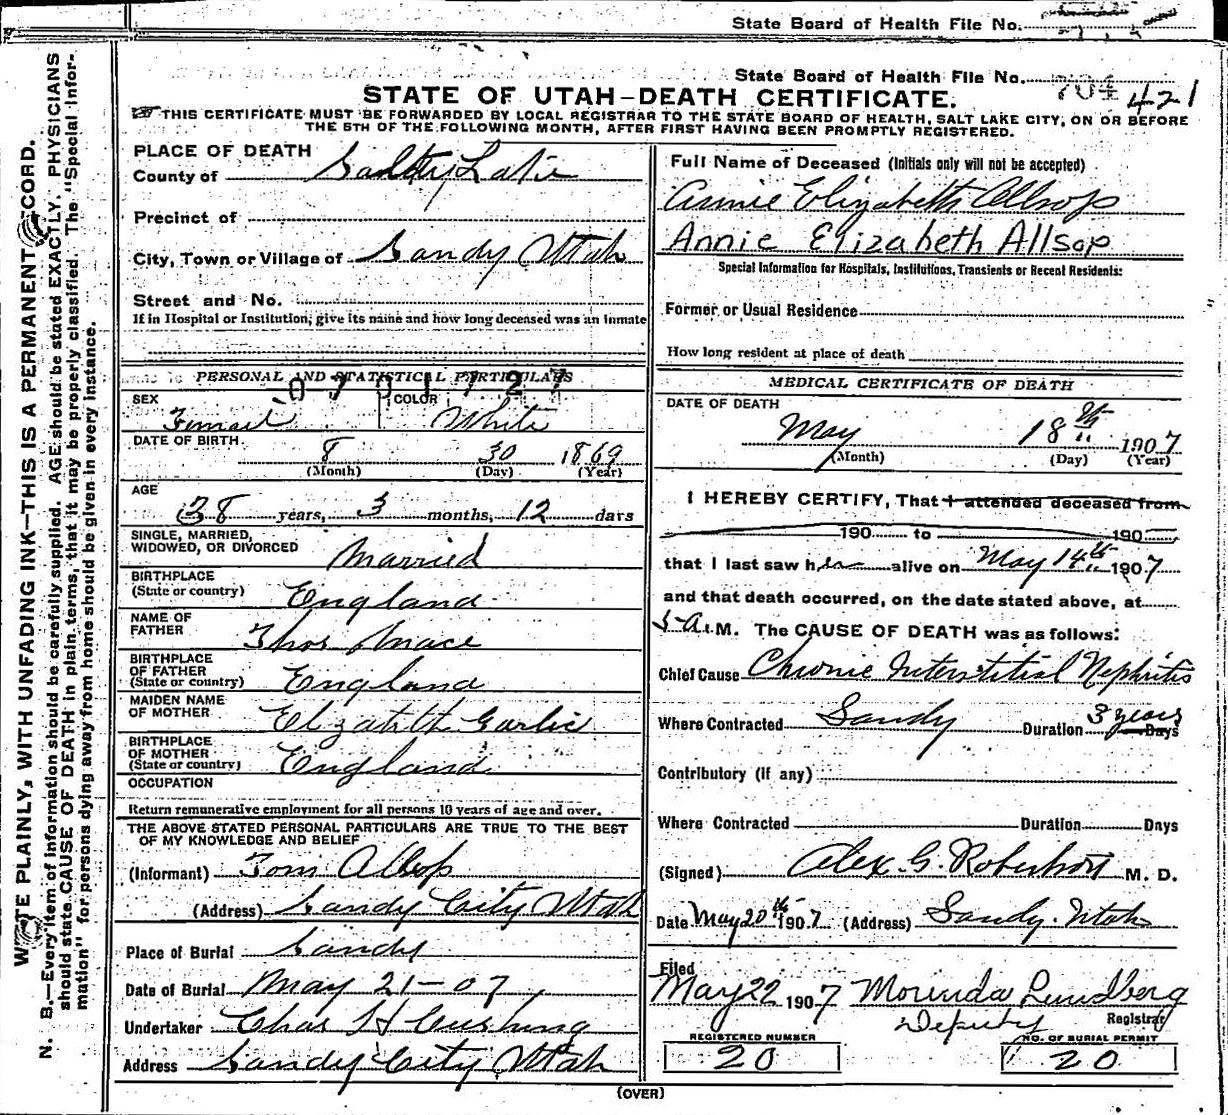 State Board of Health File No.
State Board of Health File No. 704 421
STATE OF UTAH—DEATH CERTIFICATE.
THIS CERTIFICATE MUST BE FORWARDED BY LOCAL REGISTRAR TO THE STATE BOARD OF HEALTH, SALT LAKE CITY, ON OR BEFORE
THE 5TH OF THE FOLLOWING MONTH, AFTER FIRST HAVING BEEN PROMPTLY REGISTERED.
WRITE PLAINLY, WITH UNFADING INK—THIS IS A PERMANENT RECORD.
N. B.—Every item of information should be carefully supplied. AGE should be stated EXACTLY. PHYSICIANS
should state CAUSE OF DEATH in plain terms, that it may be properly classified. The "Special Infor-
mation" for persons dying away from home should be given in every instance.
PLACE OF DEATH
County of Salt Lake
Precinct of
City, Town or Village of Sandy Utah
Street and No.
If in Hospital or Institution, give its name and how long deceased was an inmate
PERSONAL AND STATISTICAL PARTICULARS
0701727
SEX Female COLOR White
DATE OF BIRTH 8 30 1869
(Month) (Day) (Year)
AGE
38 years, 3 months, 12 days
SINGLE, MARRIED,
WIDOWED, OR DIVORCED Married
BIRTHPLACE
(State or country) England
NAME OF
FATHER Thos Mace
BIRTHPLACE
OF FATHER
(State or country) England
MAIDEN NAME
OF MOTHER Elizabeth Garlic
BIRTHPLACE
OF MOTHER
(State or country) England
OCCUPATION
Return remunerative employment for all persons 10 years of age and over.
THE ABOVE STATED PERSONAL PARTICULARS ARE TRUE TO THE BEST
OF MY KNOWLEDGE AND BELIEF
(Informant) Tom Allsop
(Address) Sandy City Utah
Place of Burial Sandy
Date of Burial May 21-07
Undertaker Chas H Cushing
Address Sandy City Utah
Full Name of Deceased (Initials only will not be accepted)
Annie Elizabeth Allsop
Annie Elizabeth Allsop
Special Information for Hospitals, Institutions, Transients or Recent Residents:
Former or Usual Residence
How long resident at place of death
MEDICAL CERTIFICATE OF DEATH
DATE OF DEATH
May 18th 1907
(Month) (Day) (Year)
I HEREBY CERTIFY, That I attended deceased from
190 to 190
that I last saw her alive on May 14th 1907
and that death occurred, on the date stated above, at
5 A.M. The CAUSE OF DEATH was as follows:
Chief Cause Chronic Interstitial Nephritis
Where Contracted Sandy Duration 3 years Days
Contributory (if any)
Where Contracted Duration Days
(Signed) Alex. G. Robertson M. D.
Date May 20th 1907 (Address) Sandy. Utah
Filed
May 22 1907 Morinda Lundberg
Deputy Registrar
REGISTERED NUMBER
20
NO. OF BURIAL PERMIT
20
(OVER)